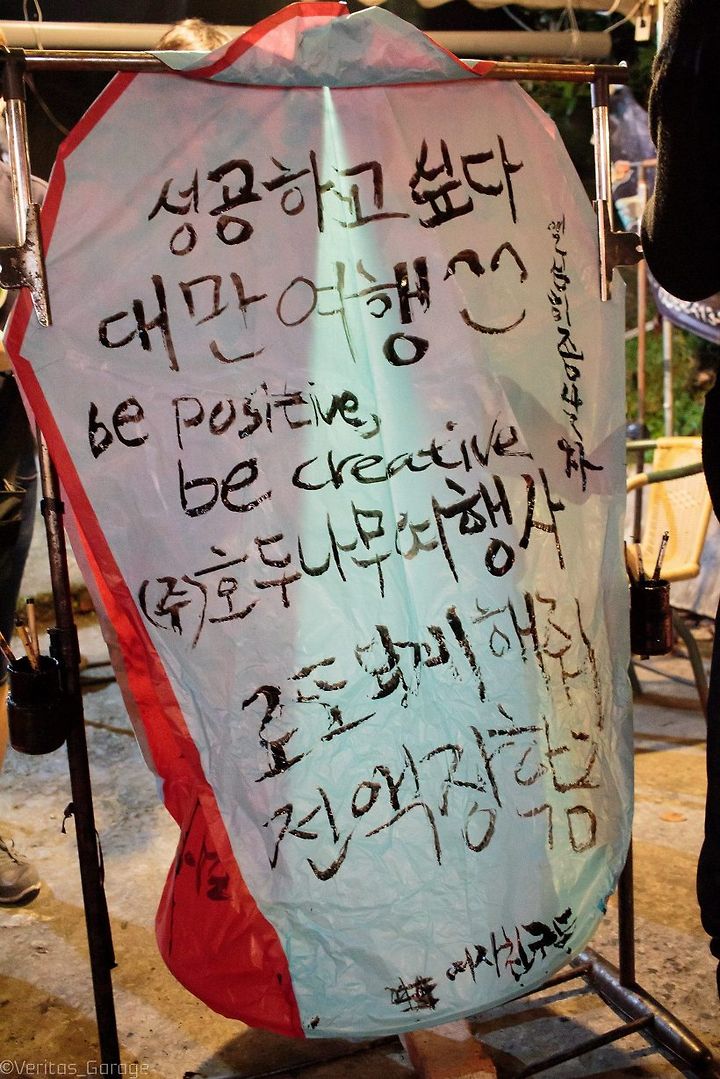 성공하고 싶다
대만여행
be positive,
be creative
(주)호두나무여행사
로또 맞게 해줘
전액장학금
# 여자친구
©Veritas_Garage